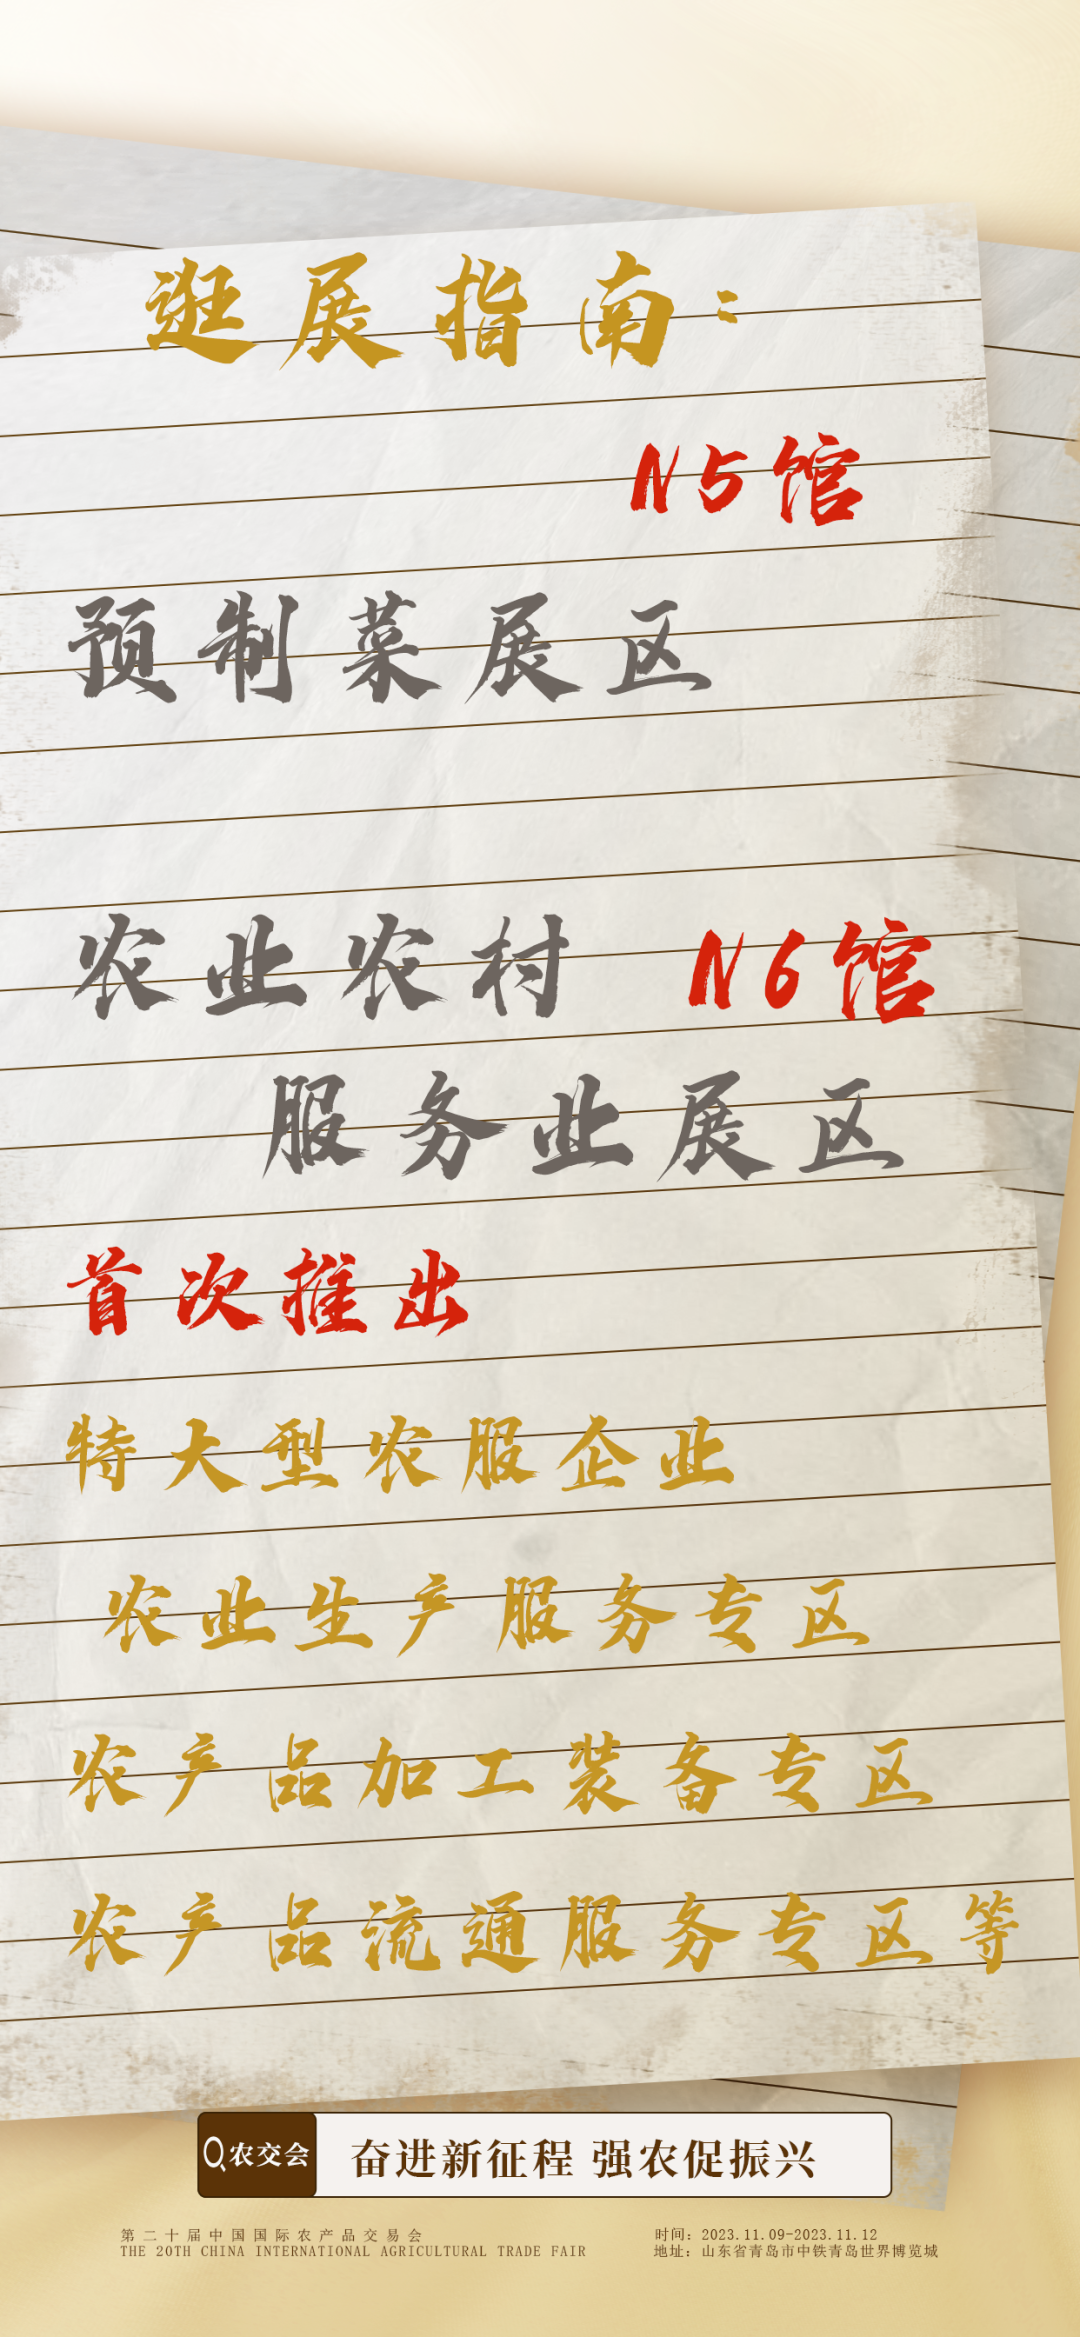 逛展指南：
N5馆
预制菜展区
农业农村 N6馆
服务业展区
首次推出
特大型农服企业
农业生产服务专区
农产品加工装备专区
农产品流通服务专区等
农交会 奋进新征程 强农促振兴
第二十届中国国际农产品交易会
THE 20TH CHINA INTERNATIONAL AGRICULTURAL TRADE FAIR
时间：2023.11.09-2023.11.12
地址：山东省青岛市中铁青岛世界博览城